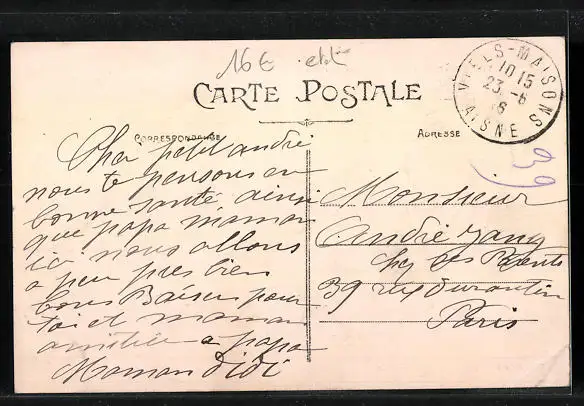 16 €
CARTE POSTALE
CORRESPONDANCE
ADRESSE
VIELS-MAISONS
10 15
23 -6
6
AISNE
39
Cher petit andré
nous te pensons en
bonne santé ainsi
que papa maman
ici nous allons
a peu pres bien
bons Baiser pour
toi et maman
amitiée a papa
Maman Didi
Monsieur
André
chez ses Parents
39 rue Durantin
Paris